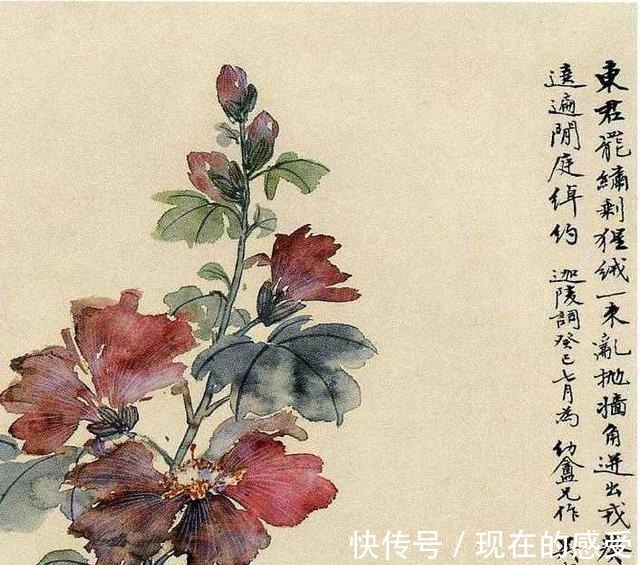 東君罷繡剩猩絨一朿亂抛牆角迸出戎葵
遶遍閒庭綽約 迦陵詞癸巳七月為 幼盦兄作
快传号/现在的感受